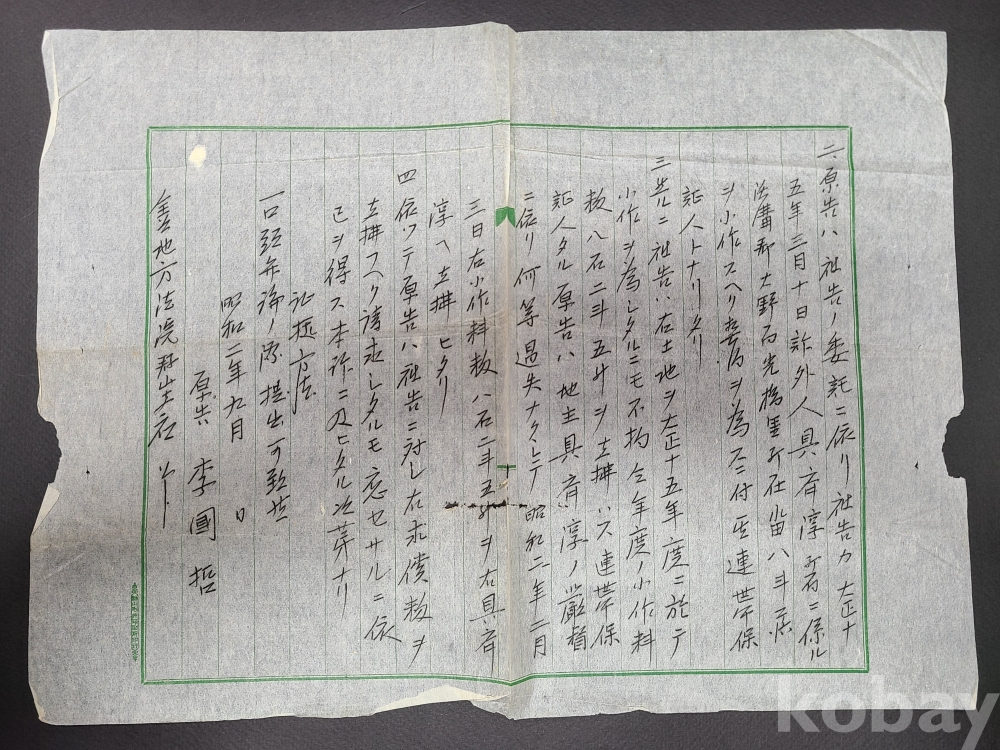 二、原告ハ祖告ノ委託ニ依リ祖告カ大正十
五年三月十日訴外人具斉淳所有ニ係ル
郡大野面光橋里所在畓八斗
ヲ小作スヘク契約ヲ為スニ付 連帯保
証人トナリタリ
三、然ルニ祖告ハ右土地ヲ大正十五年度ニ於テ
小作ヲ為シタルニモ不拘仝年度ノ小作料
租八石二斗五升ヲ支拂ハス連帯保
証人タル原告ハ地主具斉淳ノ厳督
ニ依リ何等過失ナクシテ昭和二年二月
三日右小作料租八石二斗五升ヲ右具斉
淳ヘ支拂ヒタリ
四、依ツテ原告ハ祖告ニ対シ右求償租ヲ
支拂フヘク請求シタルモ応セサルニ依
已ヲ得ス本訴ニ及ヒタル次第ナリ
証拠方法
一口頭弁論ノ際提出可致候
昭和二年九月 日
原告 李圓哲
地方法院 支庁
kobay